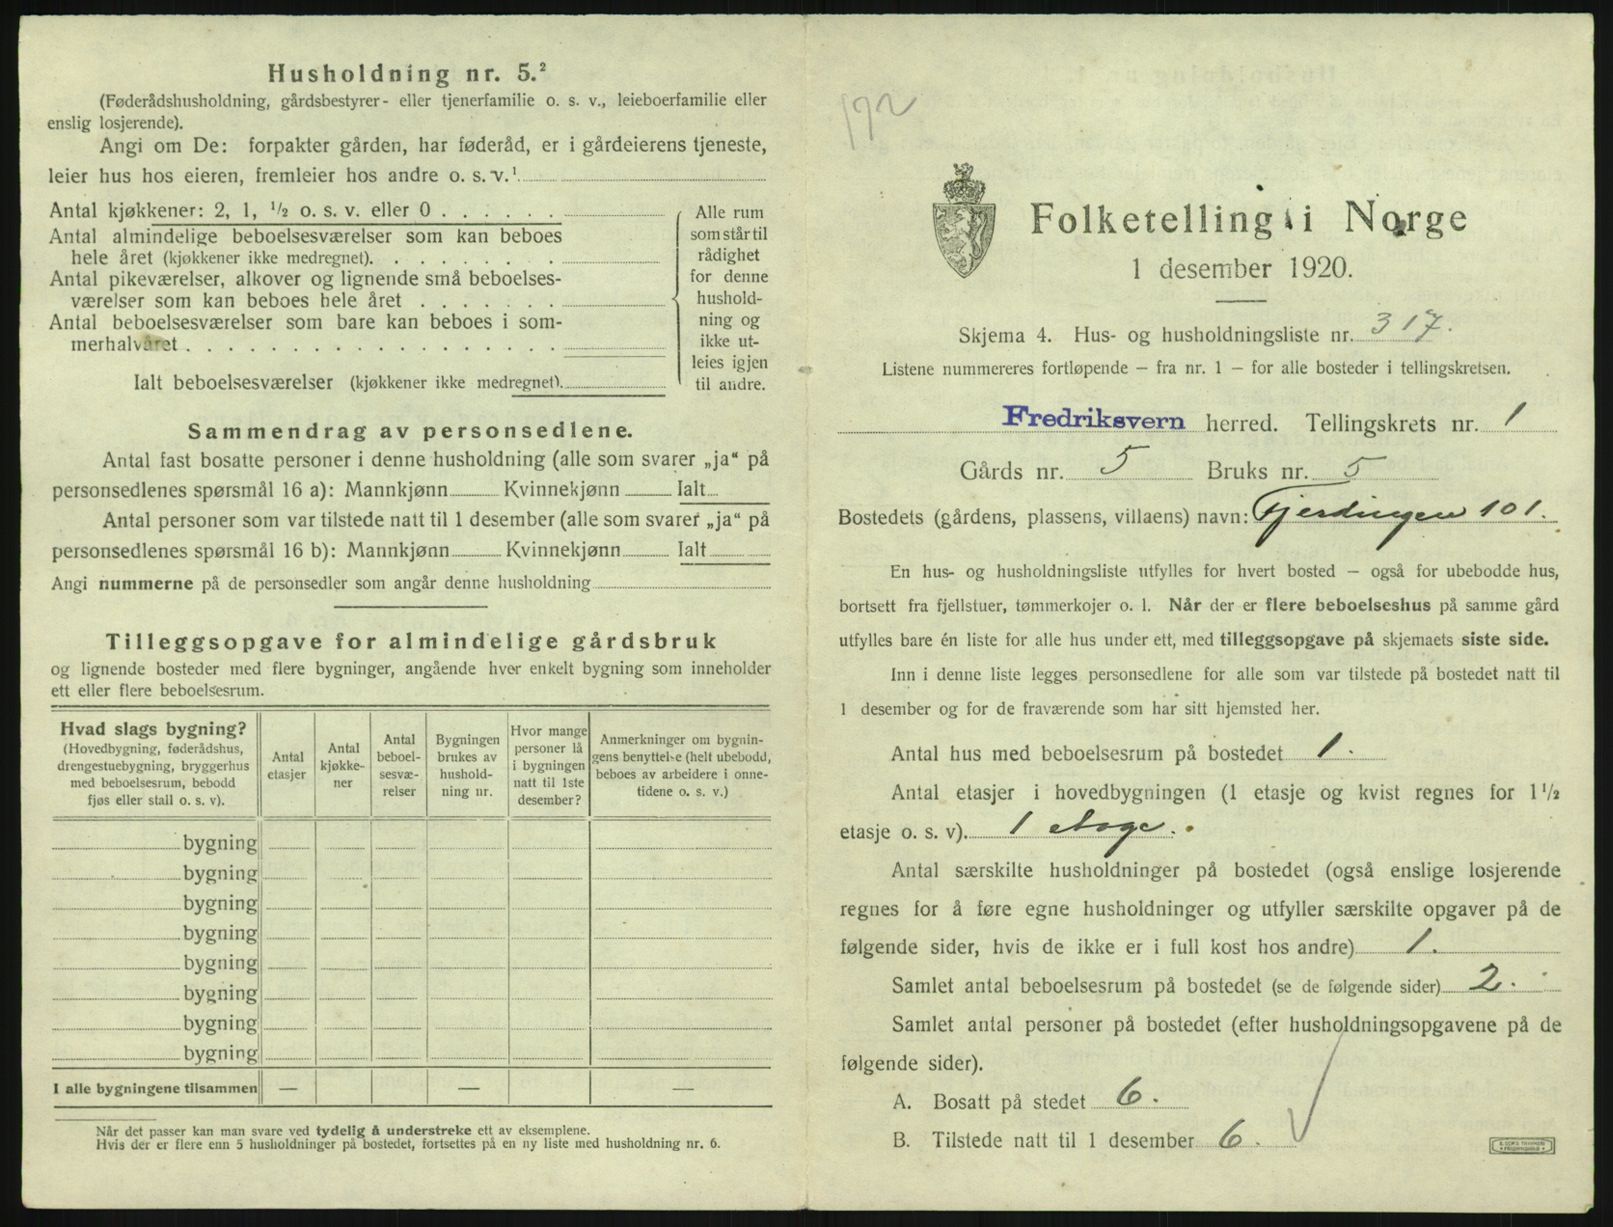 Husholdning nr. 5.²
(Føderådshusholdning, gårdsbestyrer- eller tjenerfamilie o. s. v., leieboerfamilie eller
enslig losjerende).
Angi om De: forpakter gården, har føderåd, er i gårdeierens tjeneste,
leier hus hos eieren, fremleier hos andre o. s. v.¹
Antal kjøkkener: 2, 1, ½ o. s. v. eller 0
Antal almindelige beboelsesværelser som kan beboes
hele året (kjøkkener ikke medregnet).
Antal pikeværelser, alkover og lignende små beboelses-
værelser som kan beboes hele året
Antal beboelsesværelser som bare kan beboes i som-
merhalvåret
Ialt beboelsesværelser (kjøkkener ikke medregnet).
Alle rum
som står til
rådighet
for denne
hushold-
ning og
ikke ut-
leies igjen
til andre.
Sammendrag av personsedlene.
Antal fast bosatte personer i denne husholdning (alle som svarer „ja“ på
personsedlenes spørsmål 16 a): Mannkjønn Kvinnekjønn Ialt
Antal personer som var tilstede natt til 1 desember (alle som svarer „ja“ på
personsedlenes spørsmål 16 b): Mannkjønn Kvinnekjønn Ialt
Angi nummerne på de personsedler som angår denne husholdning
Tilleggsopgave for almindelige gårdsbruk
og lignende bosteder med flere bygninger, angående hver enkelt bygning som inneholder
ett eller flere beboelsesrum.
Hvad slags bygning?
(Hovedbygning, føderådshus,
drengestuebygning, bryggerhus
med beboelsesrum, bebodd
fjøs eller stall o. s. v).
Antal
etasjer
Antal
kjøkke-
ner
Antal
beboel-
sesvæ-
relser
Bygningen
brukes av
hushold-
ning nr.
Hvor mange
personer lå
i bygningen
natt til 1ste
desember?
Anmerkninger om bygnin-
gens benyttelse (helt ubebodd,
beboes av arbeidere i onne-
tidene o. s. v.)
bygning
bygning
bygning
bygning
bygning
bygning
bygning
bygning
I alle bygningene tilsammen — — —
Når det passer kan man svare ved tydelig å understreke ett av eksemplene.
Hvis der er flere enn 5 husholdninger på bostedet, fortsettes på en ny liste med husholdning nr. 6.
192
Folketelling i Norge
1 desember 1920.
Skjema 4. Hus- og husholdningsliste nr. 317.
Listene nummereres fortløpende — fra nr. 1 — for alle bosteder i tellingskretsen.
Fredriksvern herred. Tellingskrets nr. 1
Gårds nr. 5 Bruks nr. 5
Bostedets (gårdens, plassens, villaens) navn: Fjerdingen 101.
En hus- og husholdningsliste utfylles for hvert bosted — også for ubebodde hus,
bortsett fra fjellstuer, tømmerkojer o. l. Når der er flere beboelseshus på samme gård
utfylles bare én liste for alle hus under ett, med tilleggsopgave på skjemaets siste side.
Inn i denne liste legges personsedlene for alle som var tilstede på bostedet natt til
1 desember og for de fraværende som har sitt hjemsted her.
Antal hus med beboelsesrum på bostedet 1.
Antal etasjer i hovedbygningen (1 etasje og kvist regnes for 1½
etasje o. s. v). 1 etage.
Antal særskilte husholdninger på bostedet (også enslige losjerende
regnes for å føre egne husholdninger og utfyller særskilte opgaver på de
følgende sider, hvis de ikke er i full kost hos andre) 1.
Samlet antal beboelsesrum på bostedet (se de følgende sider) 2.
Samlet antal personer på bostedet (efter husholdningsopgavene på de
følgende sider).
A. Bosatt på stedet 6.
B. Tilstede natt til 1 desember 6.